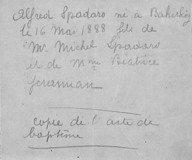 Alfred Spadaro né à Bakirköy
le 16 Mai 1888 fils de
Mr. Michel Spadaro
et de Mme Béatrice
copie de l'acte de
baptême